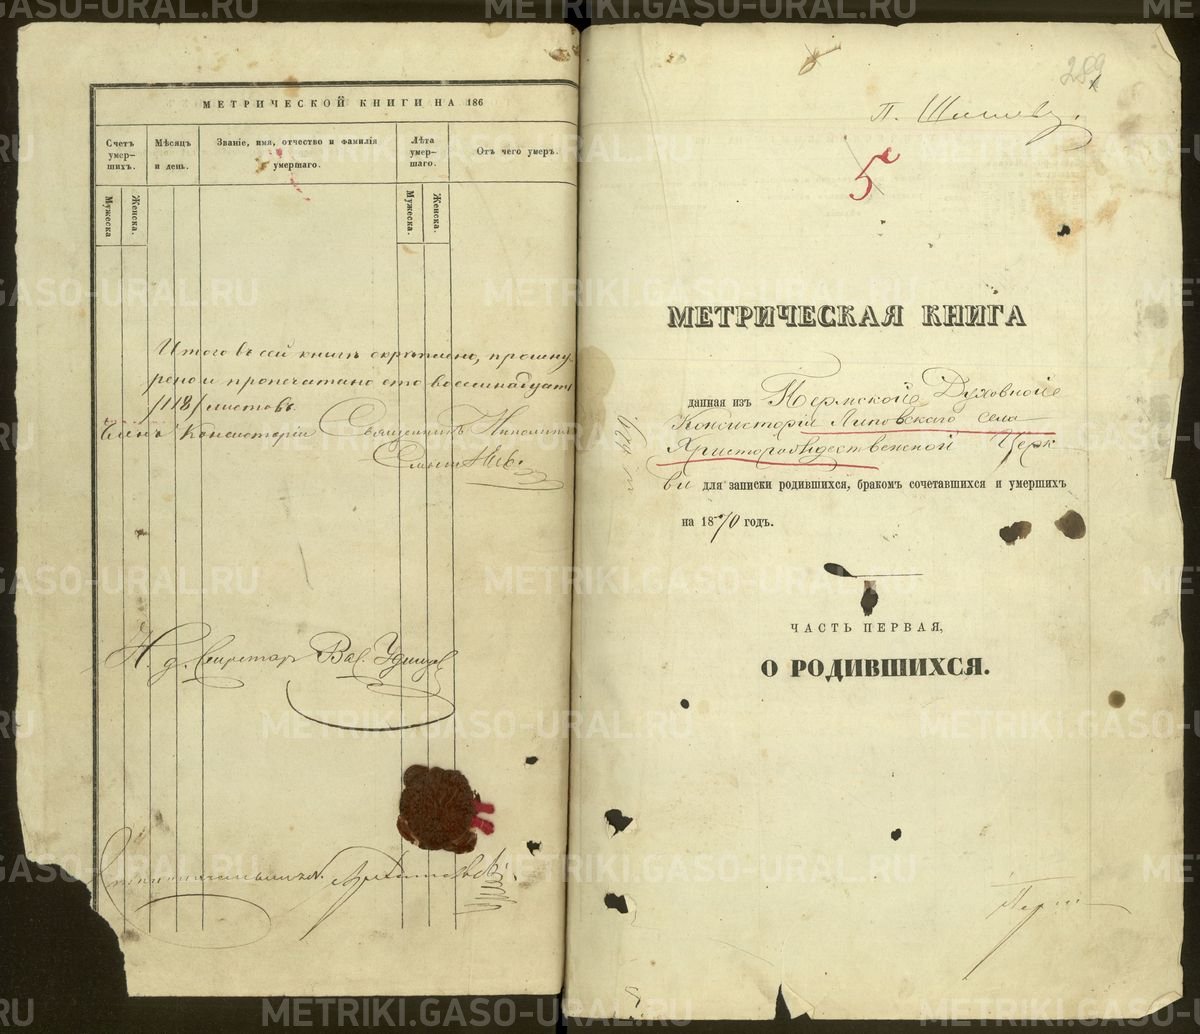 МЕТРИЧЕСКОЙ КНИГИ НА 186
Счетъ умер-шихъ.
Мѣсяцъ и день.
Званіе, имя, отчество и фамилія умершаго.
Лѣта умер-шаго.
Отъ чего умеръ.
Мужеска
Женска.
Мужеска.
Женска.
Итого въ сей книгѣ скрѣплено, прошну-
рено и пропечатано сто восемнадцать
/118/ листовъ.
Членъ Консисторіи Священникъ Ипполитъ
И. д. Секретаря Вас. Удинцев
289
5
МЕТРИЧЕСКАЯ КНИГА
данная изъ Пермской Духовной
Консисторіи Липовскаго села
Христорождественской Церк
ви для записки родившихся, бракомъ сочетавшихся и умершихъ
на 1870 годъ.
ЧАСТЬ ПЕРВАЯ,
О РОДИВШИХСЯ.
METRIKI.GASO-URAL.RU